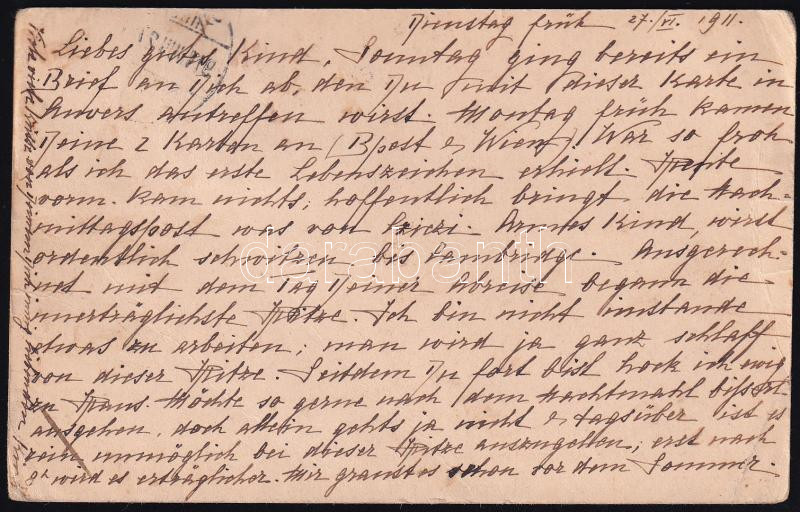 Dienstag früh 27./VI. 1911.
Liebes gutes Kind, Sonntag ging bereits ein
Brief an Dich ab, den Du mit dieser Karte in
Anvers antreffen wirst. Montag früh kamen
Deine 2 Karten an (Bpest & Wien)! War so froh
als ich das erste Lebenszeichen erhielt. Heute
vorm. kam nichts; hoffentlich bringt die Nach-
mittagspost was von Leiczi. Armes Kind, wirst
ordentlich schwitzen bis Cambridge. Ausgerech-
net mit dem Tag Deiner Abreise begann die
unerträglichste Hitze. Ich bin nicht imstande
etwas zu arbeiten; man wird ja ganz schlaff
von dieser Hitze. Seitdem Du fort bist hock ich ewig
zu Haus. Möchte so gerne nach dem Nachtmahl bisserl
ausgehen, doch allein gehts ja nicht & tagsüber ist es
rein unmöglich bei dieser Hitze auszugehen; erst nach
8h wird es erträglicher. Mir graust es schon vor dem Sommer.
darabanth